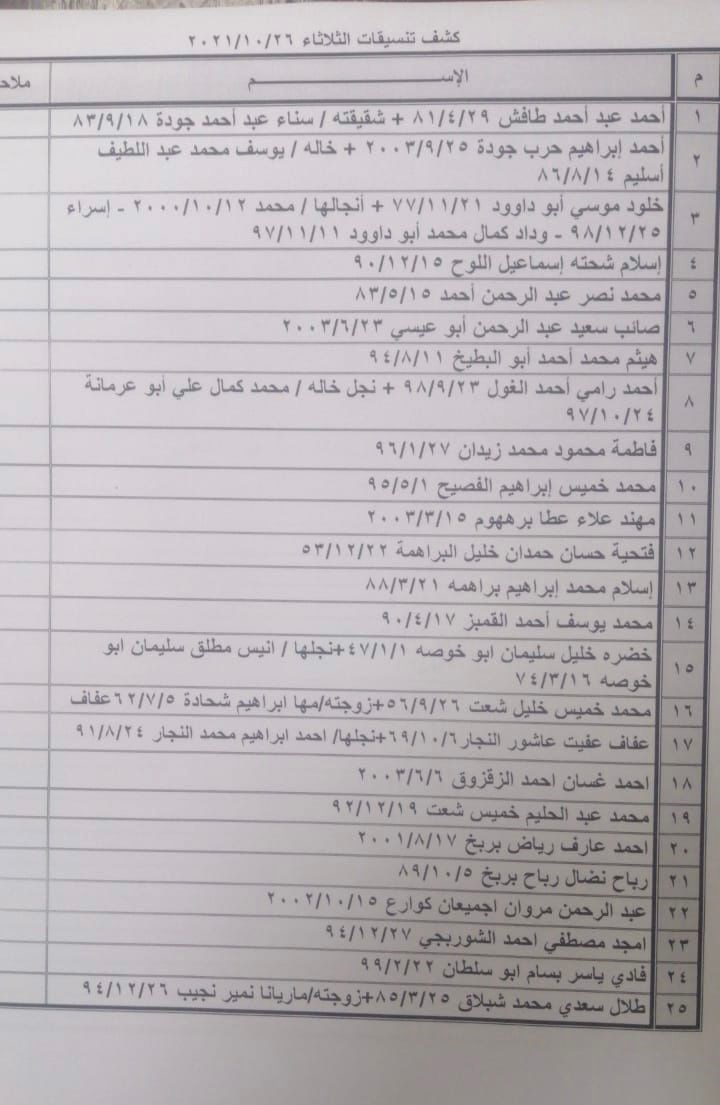 كشف تنسيقات الثلاثاء ٢٠٢١/١٠/٢٦
م الإســـــــــم ملاحـ
١ أحمد عبد أحمد طافش ٨١/٤/٢٩ + شقيقته / سناء عبد أحمد جودة ٨٣/٩/١٨
٢ أحمد إبراهيم حرب جودة ٢٠٠٣/٩/٢٥ + خاله / يوسف محمد عبد اللطيف
أسليم ٨٦/٨/١٤
٣ خلود موسي أبو داوود ٧٧/١١/٢١ + أنجالها / محمد ٢٠٠٠/١٠/١٢ - إسراء
٩٨/١٢/٢٥ - وداد كمال محمد أبو داوود ٩٧/١١/١١
٤ إسلام شحته إسماعيل اللوح ٩٠/١٢/١٥
٥ محمد نصر عبد الرحمن أحمد ٨٣/٥/١٥
٦ صائب سعيد عبد الرحمن أبو عيسي ٢٠٠٣/٦/٢٣
٧ هيثم محمد أحمد أبو البطيخ ٩٤/٨/١١
٨ أحمد رامي أحمد الغول ٩٨/٩/٢٣ + نجل خاله / محمد كمال علي أبو عرمانة
٩٧/١٠/٢٤
٩ فاطمة محمود محمد زيدان ٩٦/١/٢٧
١٠ محمد خميس إبراهيم الفصيح ٩٥/٥/١
١١ مهند علاء عطا برههوم ٢٠٠٣/٣/١٥
١٢ فتحية حسان حمدان خليل البراهمة ٥٣/١٢/٢٢
١٣ إسلام محمد إبراهيم براهمه ٨٨/٣/٢١
١٤ محمد يوسف أحمد القمبز ٩٠/٤/١٧
١٥ خضره خليل سليمان ابو خوصه ٤٧/١/١+نجلها / انيس مطلق سليمان ابو
خوصه ٧٤/٣/١٦
١٦ محمد خميس خليل شعت ٥٦/٩/٢٦+زوجته/مها ابراهيم شحادة ٦٢/٧/٥عفاف
١٧ عفاف عفيت عاشور النجار٦٩/١٠/٦+نجلها/ احمد ابراهيم محمد النجار ٩١/٨/٢٤
١٨ احمد غسان احمد الزقزوق ٢٠٠٣/٦/٦
١٩ محمد عبد الحليم خميس شعت ٩٢/١٢/١٩
٢٠ احمد عارف رياض بربخ ٢٠٠١/٨/١٧
٢١ رباح نضال رباح بربخ ٨٩/١٠/٥
٢٢ عبد الرحمن مروان اجميعان كوارع ٢٠٠٢/١٠/١٥
٢٣ امجد مصطفي احمد الشوربجي ٩٤/١٢/٢٧
٢٤ فادي ياسر بسام ابو سلطان ٩٩/٢/٢٢
٢٥ طلال سعدي محمد شبلاق ٨٥/٣/٢٥+زوجته/ماريانا نمير نجيب ٩٤/١٢/٢٦